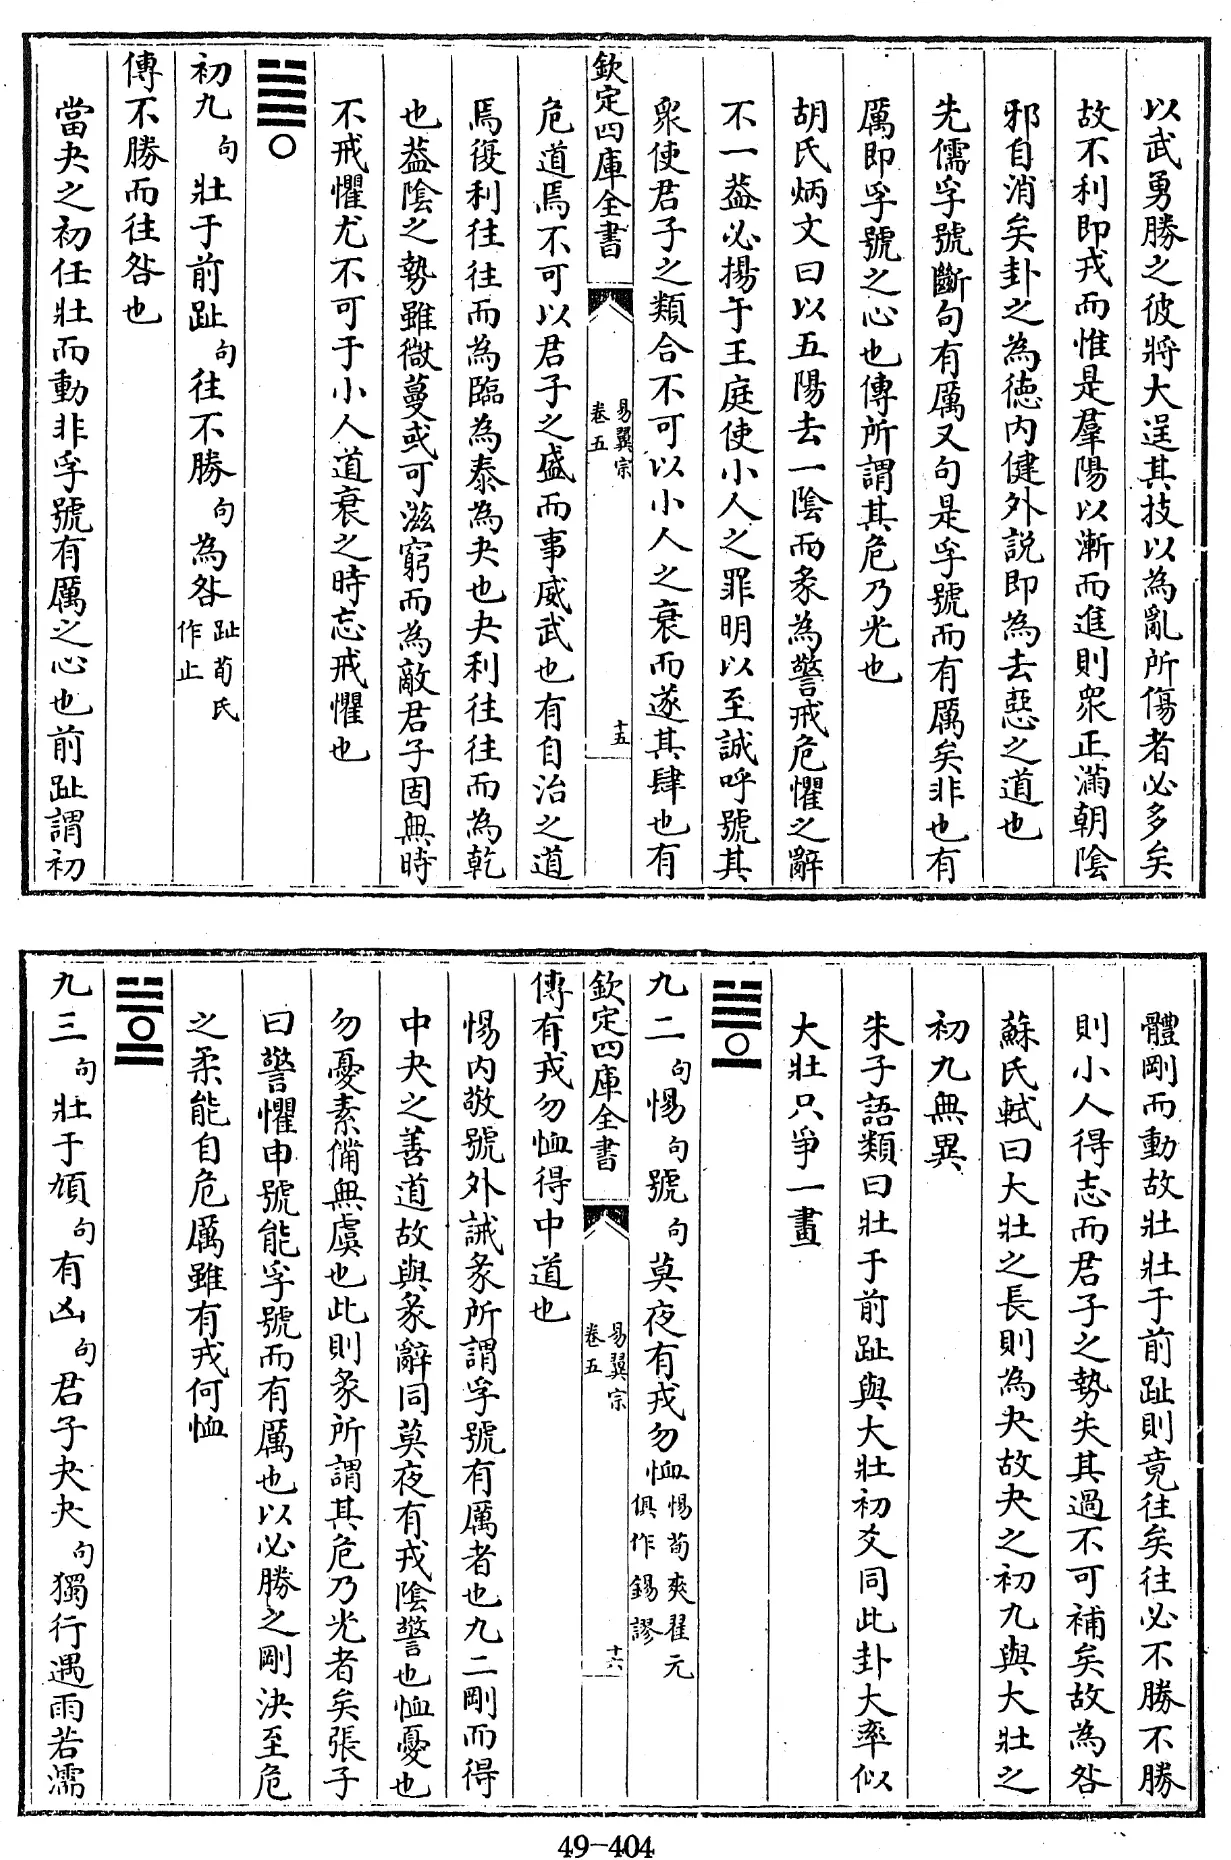 以武勇勝之彼將大逞其技以為亂所傷者必多矣
故不利即戎而惟是羣陽以漸而進則衆正滿朝陰
邪自消矣卦之為德内健外説即為去惡之道也
先儒孚號斷句有厲又句是孚號而有厲矣非也有
厲即孚號之心也傳所謂其危乃光也
胡氏炳文曰以五陽去一陰而彖為警戒危懼之辭
不一葢必揚于王庭使小人之罪明以至誠呼號其
衆使君子之類合不可以小人之衰而遂其肆也有
欽定四庫全書
易翼宗
卷五
十五
危道焉不可以君子之盛而事威武也有自治之道
焉復利往往而為臨為泰為夬也夬利往往而為乾
也葢陰之勢雖微蔓或可滋窮而為敵君子固無時
不戒懼尤不可于小人道衰之時忘戒懼也
○
初九句壯于前趾句往不勝句為咎趾荀氏
作止
傳不勝而往咎也
當夬之初任壯而動非孚號有厲之心也前趾謂初
體剛而動故壯壯于前趾則竟往矣往必不勝不勝
則小人得志而君子之勢失其過不可補矣故為咎
蘇氏軾曰大壯之長則為夬故夬之初九與大壯之
初九無異
朱子語類曰壯于前趾與大壯初爻同此卦大率似
大壯只爭一畫
○
九二句惕句號句莫夜有戎勿恤惕荀爽翟元
俱作錫謬
欽定四庫全書
易翼宗
卷五
十六
傳有戎勿恤得中道也
惕内敬號外誡彖所謂孚號有厲者也九二剛而得
中夬之善道故與彖辭同莫夜有戎陰警也恤憂也
勿憂素備無虞也此則彖所謂其危乃光者矣張子
曰警懼申號能孚號而有厲也以必勝之剛決至危
之柔能自危厲雖有戎何恤
○
九三句壯于頄句有凶句君子夬夬句獨行遇雨若濡
49-404